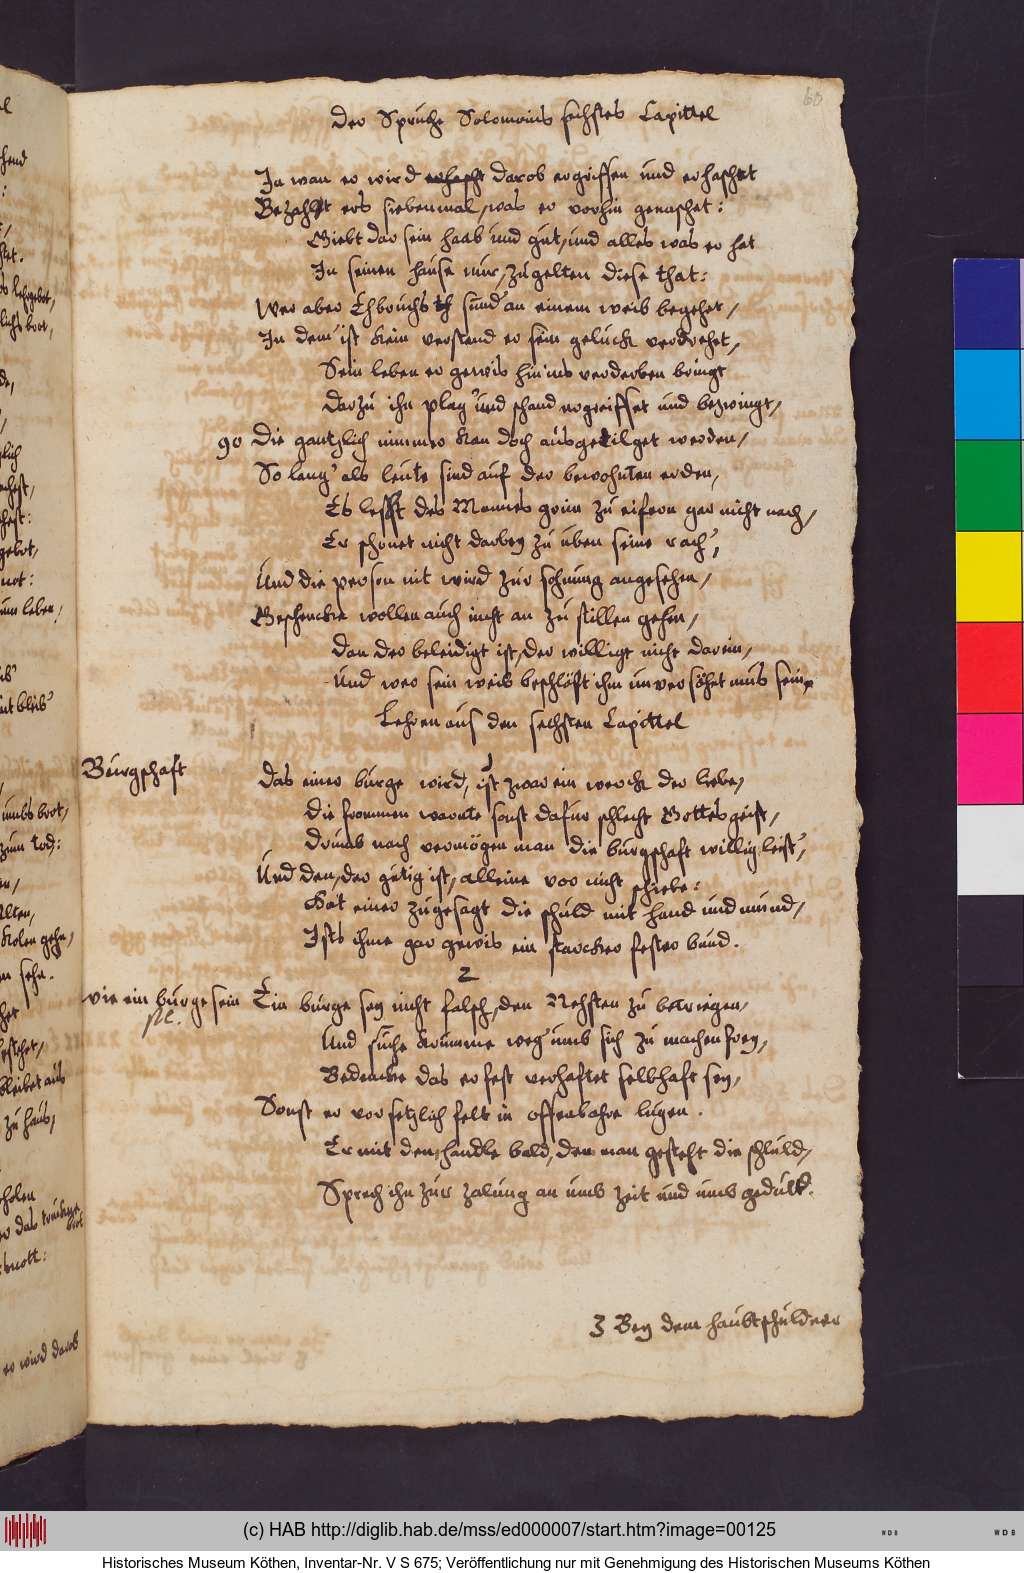 60
Der Sprüche Solomonis sechstes Capittel
Ja wan er wird erhascht darob ergriffen und erhaschet
Bezahlt ers siebenmal, was er vorhin genaschet:
Giebt dar sein haab und gut, und alles was er hat
In seinen hause nur, zu gelten diese that:
Wer aber Ehbruchs sünd an einem weib begehet,
In dem ist kein verstand er sein gelück verdrehet,
Sein leben er gewis hin ins verderben bringt
Darzu ihn plag und schand ergreiffet und bezwingt,
90 Die gantzlich nimmer kan doch ausgetilget werden,
So lang als leute sind auf der bewohnten erden,
Es lesst des Mannes grim zu eifern gar nicht nach,
Er schonet nicht darbey zu üben seine rach,
Und die person nit wird zur sohnung angesehen,
Geschencke wollen auch nicht an zu stillen gehen,
Dan der beleidigt ist, der willigt nicht darein,
Und wer sein weib beschläft ihm unversöhet mus sein
Lehren aus den sechsten Capittel
Bürgschaft
1
Das einer bürge wird, ist zwar ein werck der liebe,
Die frommen warnte sonst dafür schlecht Gottes geist,
Drumb nach vermögen man die bürgschaft willig leist,
Und den, der gütig ist, alleine vor nicht schiebe:
Hat einer zugesagt die schuld mit hand und mund,
Ists ihme gar gewis ein starcker fester bund.
2
Wie ein bürge sein
sol.
Ein bürge sey nicht falsch, den Nehsten zu betriegen,
Und suche krumme weg umb sich zu machen frey,
Bedencke das er fest verhaftet selbhaft sey,
Sonst er vorsetzlich felt in offenbahre lügen.
Er mit dem handle bald, dem man gesteht die schuld,
Sprech ihn zur zalung an umb zeit und umb gedult.
3 Bey dem haubtschuldner
er wird darob
(c) HAB http://diglib.hab.de/mss/ed000007/start.htm?image=00125
WDB
WDB
Historisches Museum Köthen, Inventar-Nr. V S 675; Veröffentlichung nur mit Genehmigung des Historischen Museums Köthen